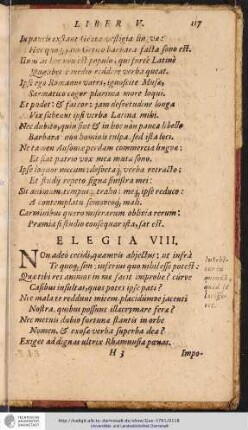 LIBER V. 117
In paucis extant Græcæ vestigia linguæ:
Hoc quoq; jam Getico barbara facta sono est.
Unus in hoc non est populo, qui forte Latinè
Quælibet e medio reddere verba queat.
Ipse ego Romanus vates, ignoscite Musæ,
Sarmatico cogor plurima more loqui.
Et pudet: & fateor; jam desvetudine longa
Vix subeunt ipsi verba Latina mihi.
Nec dubito, quin sint & in hoc non pauca libello
Barbara: non hominis culpa, sed ista loci.
Ne tamen Ausoniæ perdam commercia linguæ:
Et fiat patrio vox mea muta sono.
Ipse loquor mecum: desuetaq; verba retracto:
Et studij repeto signa sinistra mei.
Sic animum, tempusq; traho: meq; ipse reduco:
A contemplatu summoveoq; mali.
Carminibus quæro miserarum oblivia rerum:
Præmia si studio consequar ista, sat est.
ELEGIA VIII.
NOn adeò cecidi, quamvis abjectus, ut infrà
Te quoq; sim: inferius quo nihil esse potest:
Quæ tibi res animos in me facit improbe? cur ve
Casibus insultas, quos potes ipse pati?
Nec mala te reddunt mitem placidumve jacenti
Nostra, quibus possint illacrymare feræ?
Nec metuis dubio fortunæ stantis in orbe
Numen, & exosæ verba superba deæ?
Exiget ad dignas ultrix Rhamnusia pœnas.
H 3 Impo-